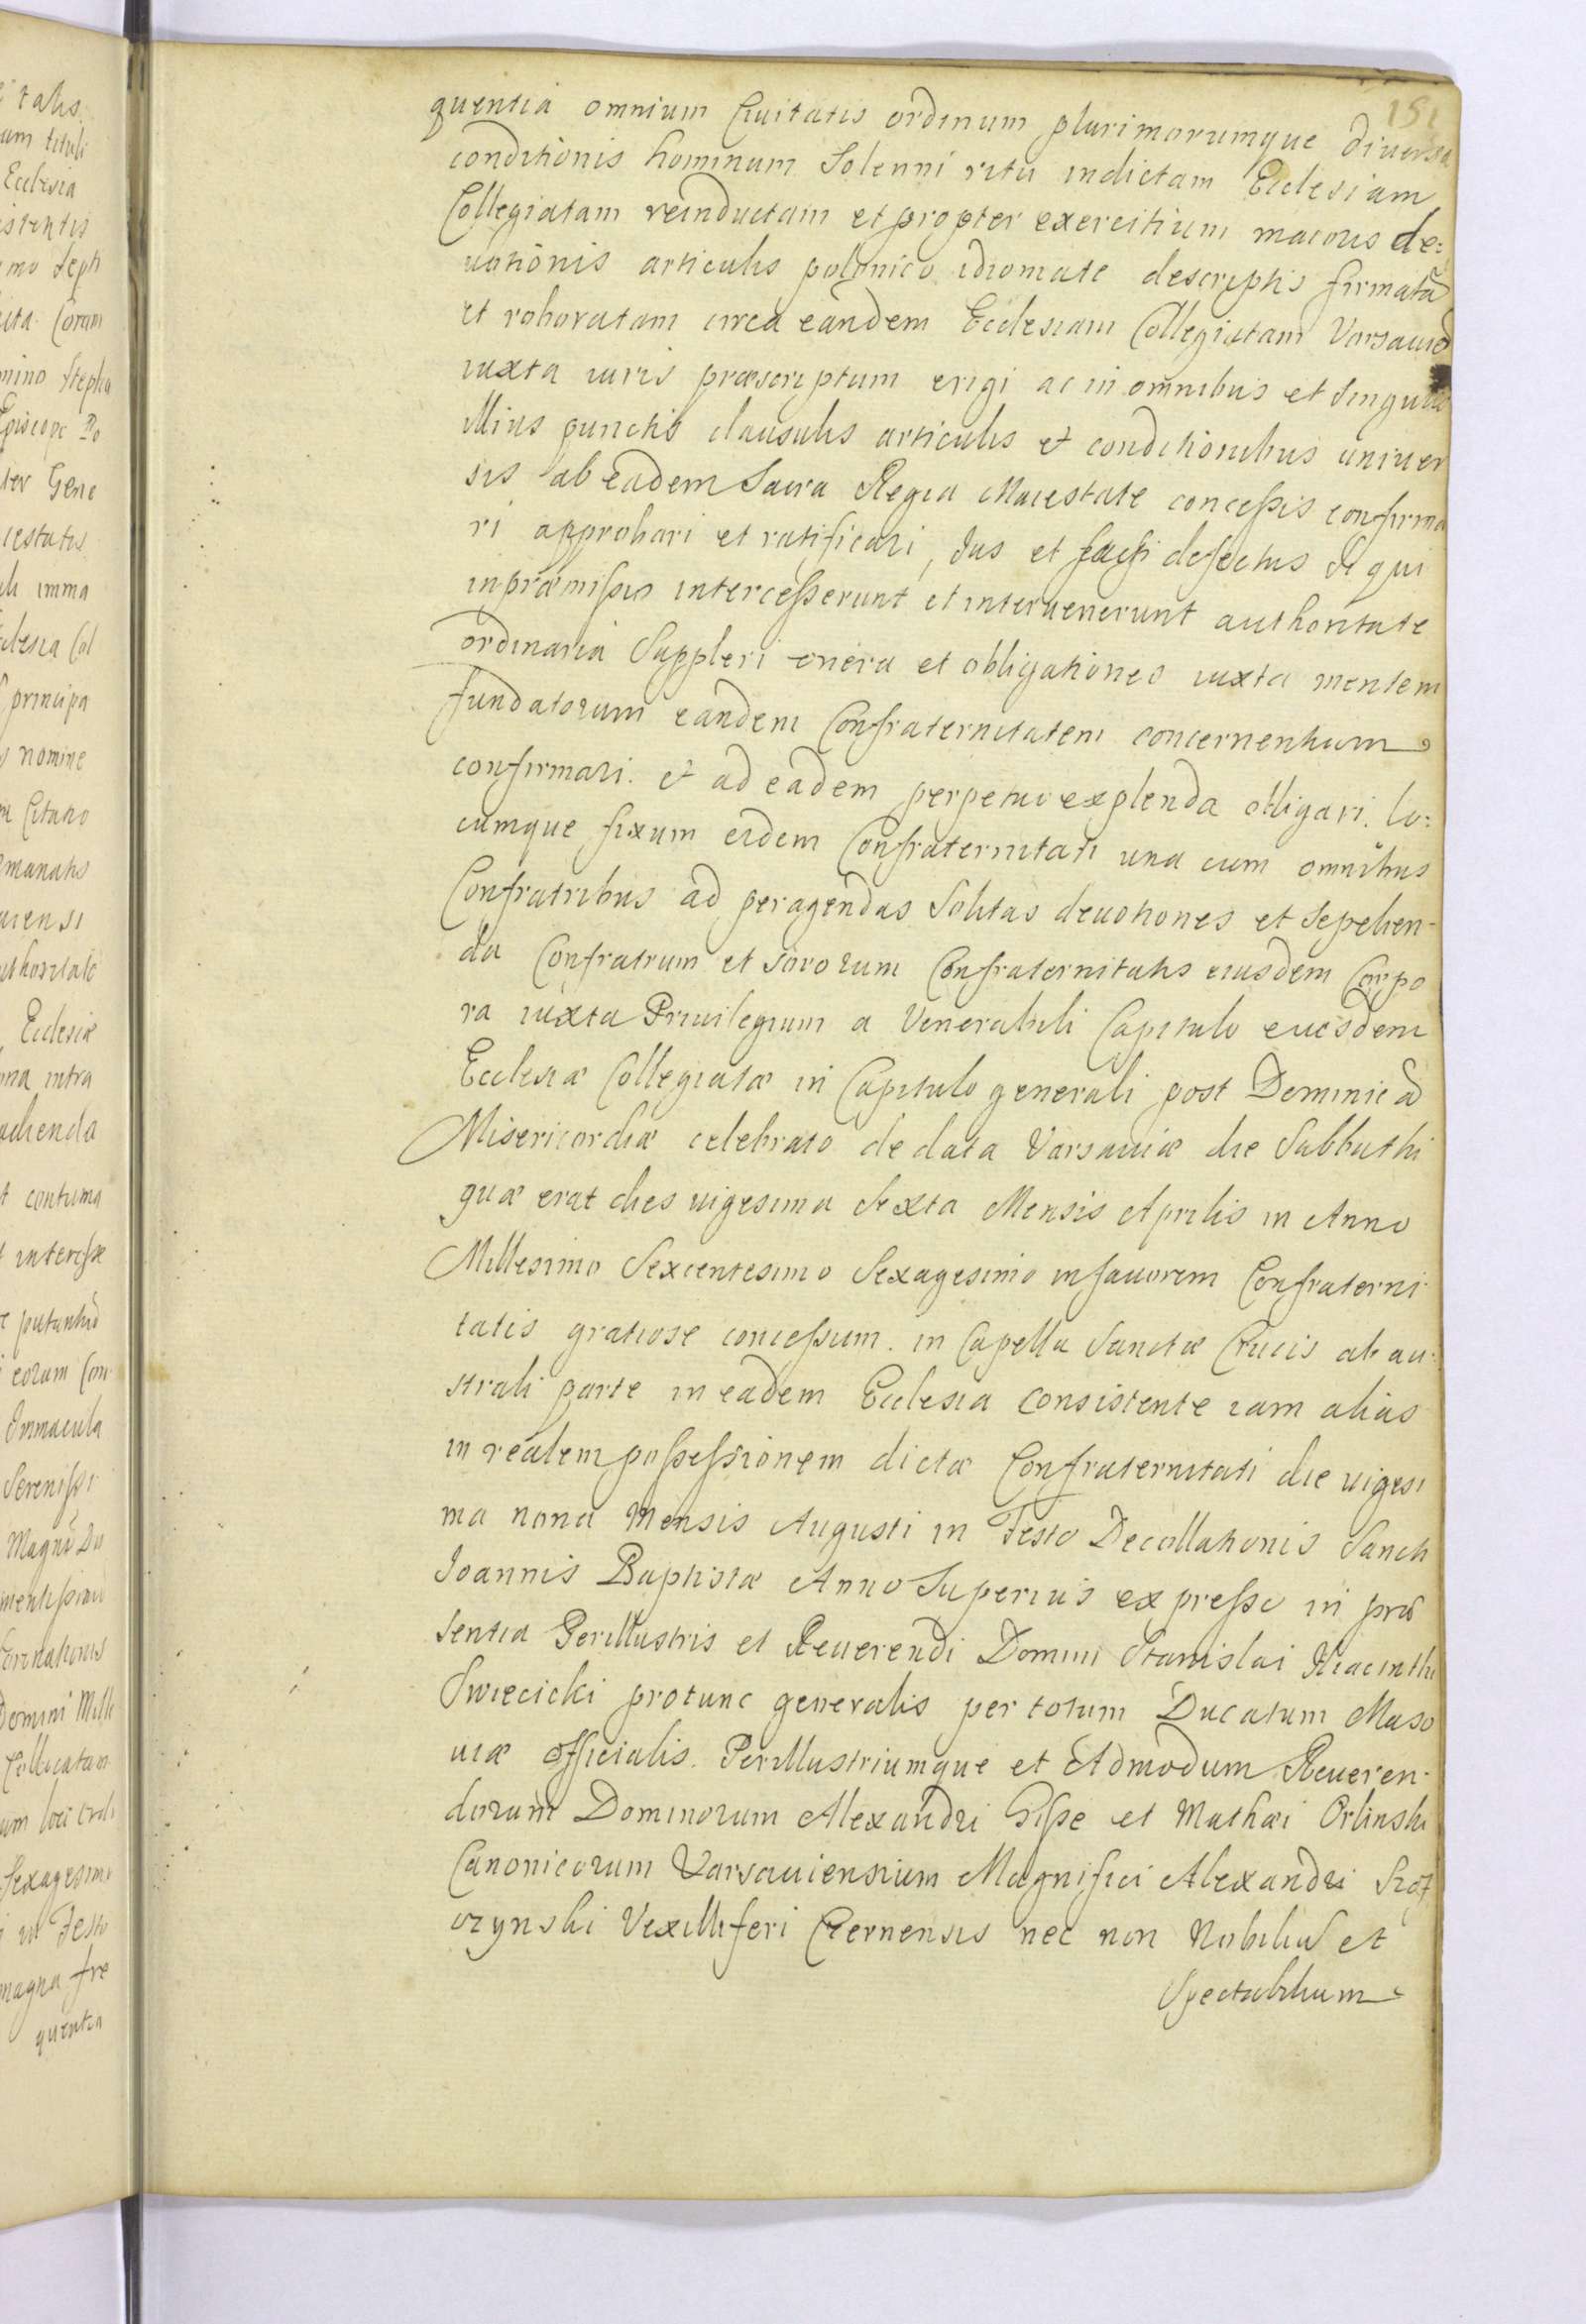 151
quentia omnium Ciuitatis ordinum plurimorumque diuersa
conditionis hominum Solenni ritu indictam Ecclesiam
Collegiatam reinductam et propter exercitium maioris de:
uotionis articulis polonico idiomate descriptis firmatã
et roboratam circa eandem Ecclesiam Collegiatam Varsauie
iuxta iuris præscriptum erigi ac in omnibus et Singulis
illius punctis clausulis articulis et conditionibus uniuer
sis ab eadem Sacra Regia Maiestate concessis confirma
ri approbari et ratificari, Jus et facti defectus Si qui
in præmissis intercesserunt et interuenerunt authoritate
ordinaria Suppleri onera et obligationes iuxta mentem
fundatorum eandem Confraternitatem concernentium
confirmari. et ad eadem perpetuo explenda obligari. lo:
cumque fixum eidem Confraternitati una cum omnibus
Confratribus ad peragendas Solitas deuotiones et Sepelien-
da Confratrum et Sororum Confraternitatis eiusdem Corpo
ra iuxta Priuilegium a Venerabili Capitulo eiusdem
Ecclesiæ Collegiatæ in Capitulo generali post Dominicã
Misericordiæ celebrato de data Varsauiæ die Sabbathi
quæ erat dies uigesima Sexta Mensis Aprilis in Anno
Millesimo Sexcentesimo Sexagesimo in fauorem Confraterni-
tatis gratiose concessum. in Capella Sanctæ Crucis ab au-
strali parte in eadem Ecclesia Consistente iam alias
in realem possessionem dictæ Confraternitati die uigesi
ma nona Mensis Augusti in Festo Decollationis Sancti
Joannis Baptistæ Anno Superius expresso in præ
sentia Perillustris et Reuerendi Domini Stanislai Hiacinthi
Swiecicki protunc generalis per totum Ducatum Maso
uiæ Officialis. Perillustriumque et Admodum Reueren-
dorum Dominorum Alexandri Gisse et Mathæi Orlinski
Canonicorum Varsauiensium Magnifici Alexandri
Vexilliferi Czernensis nec non Nobiliũ et
Spectabilium